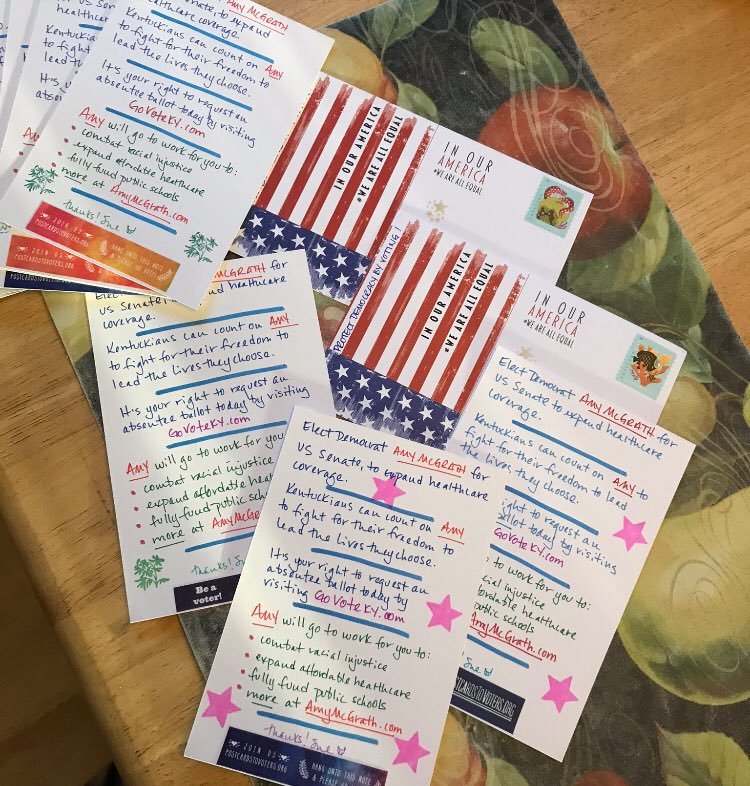 Senate, to expand
healthcare coverage.
Kentuckians can count on Amy
to fight for their freedom to
lead the lives they choose.
It's your right to request an
absentee ballot today by visiting
GoVoteKY.com
Amy will go to work for you to:
• combat racial injustice
• expand affordable healthcare
• fully fund public schools
• more at AmyMcGrath.com
thanks! Sue
POSTCARDSTOVOTERS.ORG
HANG ONTO THIS NOTE
IN OUR AMERICA
#WE ARE ALL EQUAL
IN OUR
AMERICA
#WE ARE ALL EQUAL
PROTECT DEMOCRACY BY VOTING!
IN OUR AMERICA
#WE ARE ALL EQUAL
IN OUR
AMERICA
#WE ARE ALL EQUAL
Elect Democrat Amy McGrath for
US Senate to expand healthcare
coverage.
Kentuckians can count on Amy
to fight for their freedom to
lead the lives they choose.
It's your right to request an
absentee ballot today by visiting
GoVoteKY.com
Amy will go to work for you
• combat racial injustice
• expand affordable health
• fully fund public schools
• more at AmyMcGra
thanks! Su
Be a
voter!
Elect Democrat Amy McGrath for
US Senate, to expand healthcare
coverage.
Kentuckians can count on Amy
to fight for their freedom to
lead the lives they choose.
It's your right to request an
absentee ballot today by
visiting GoVoteKY.com
Amy will go to work for you to:
• combat racial injustice
• expand affordable healthcare
• fully fund public schools
• more at AmyMcGrath.com
thanks! Sue
POSTCARDSTOVOTERS.ORG
HANG ONTO THIS NOTE
Elect Democrat Amy McGrath for
US Senate to expand healthcare
coverage.
Kentuckians can count on Amy to
fight for their freedom to lead
the lives they choose.
right to request an
ballot today by visiting
GoVoteKY.com
to work for you to:
racial injustice
affordable healthcare
public schools
AmyMcGrath.com
Sue
POSTCARDSTOVOTERS.ORG